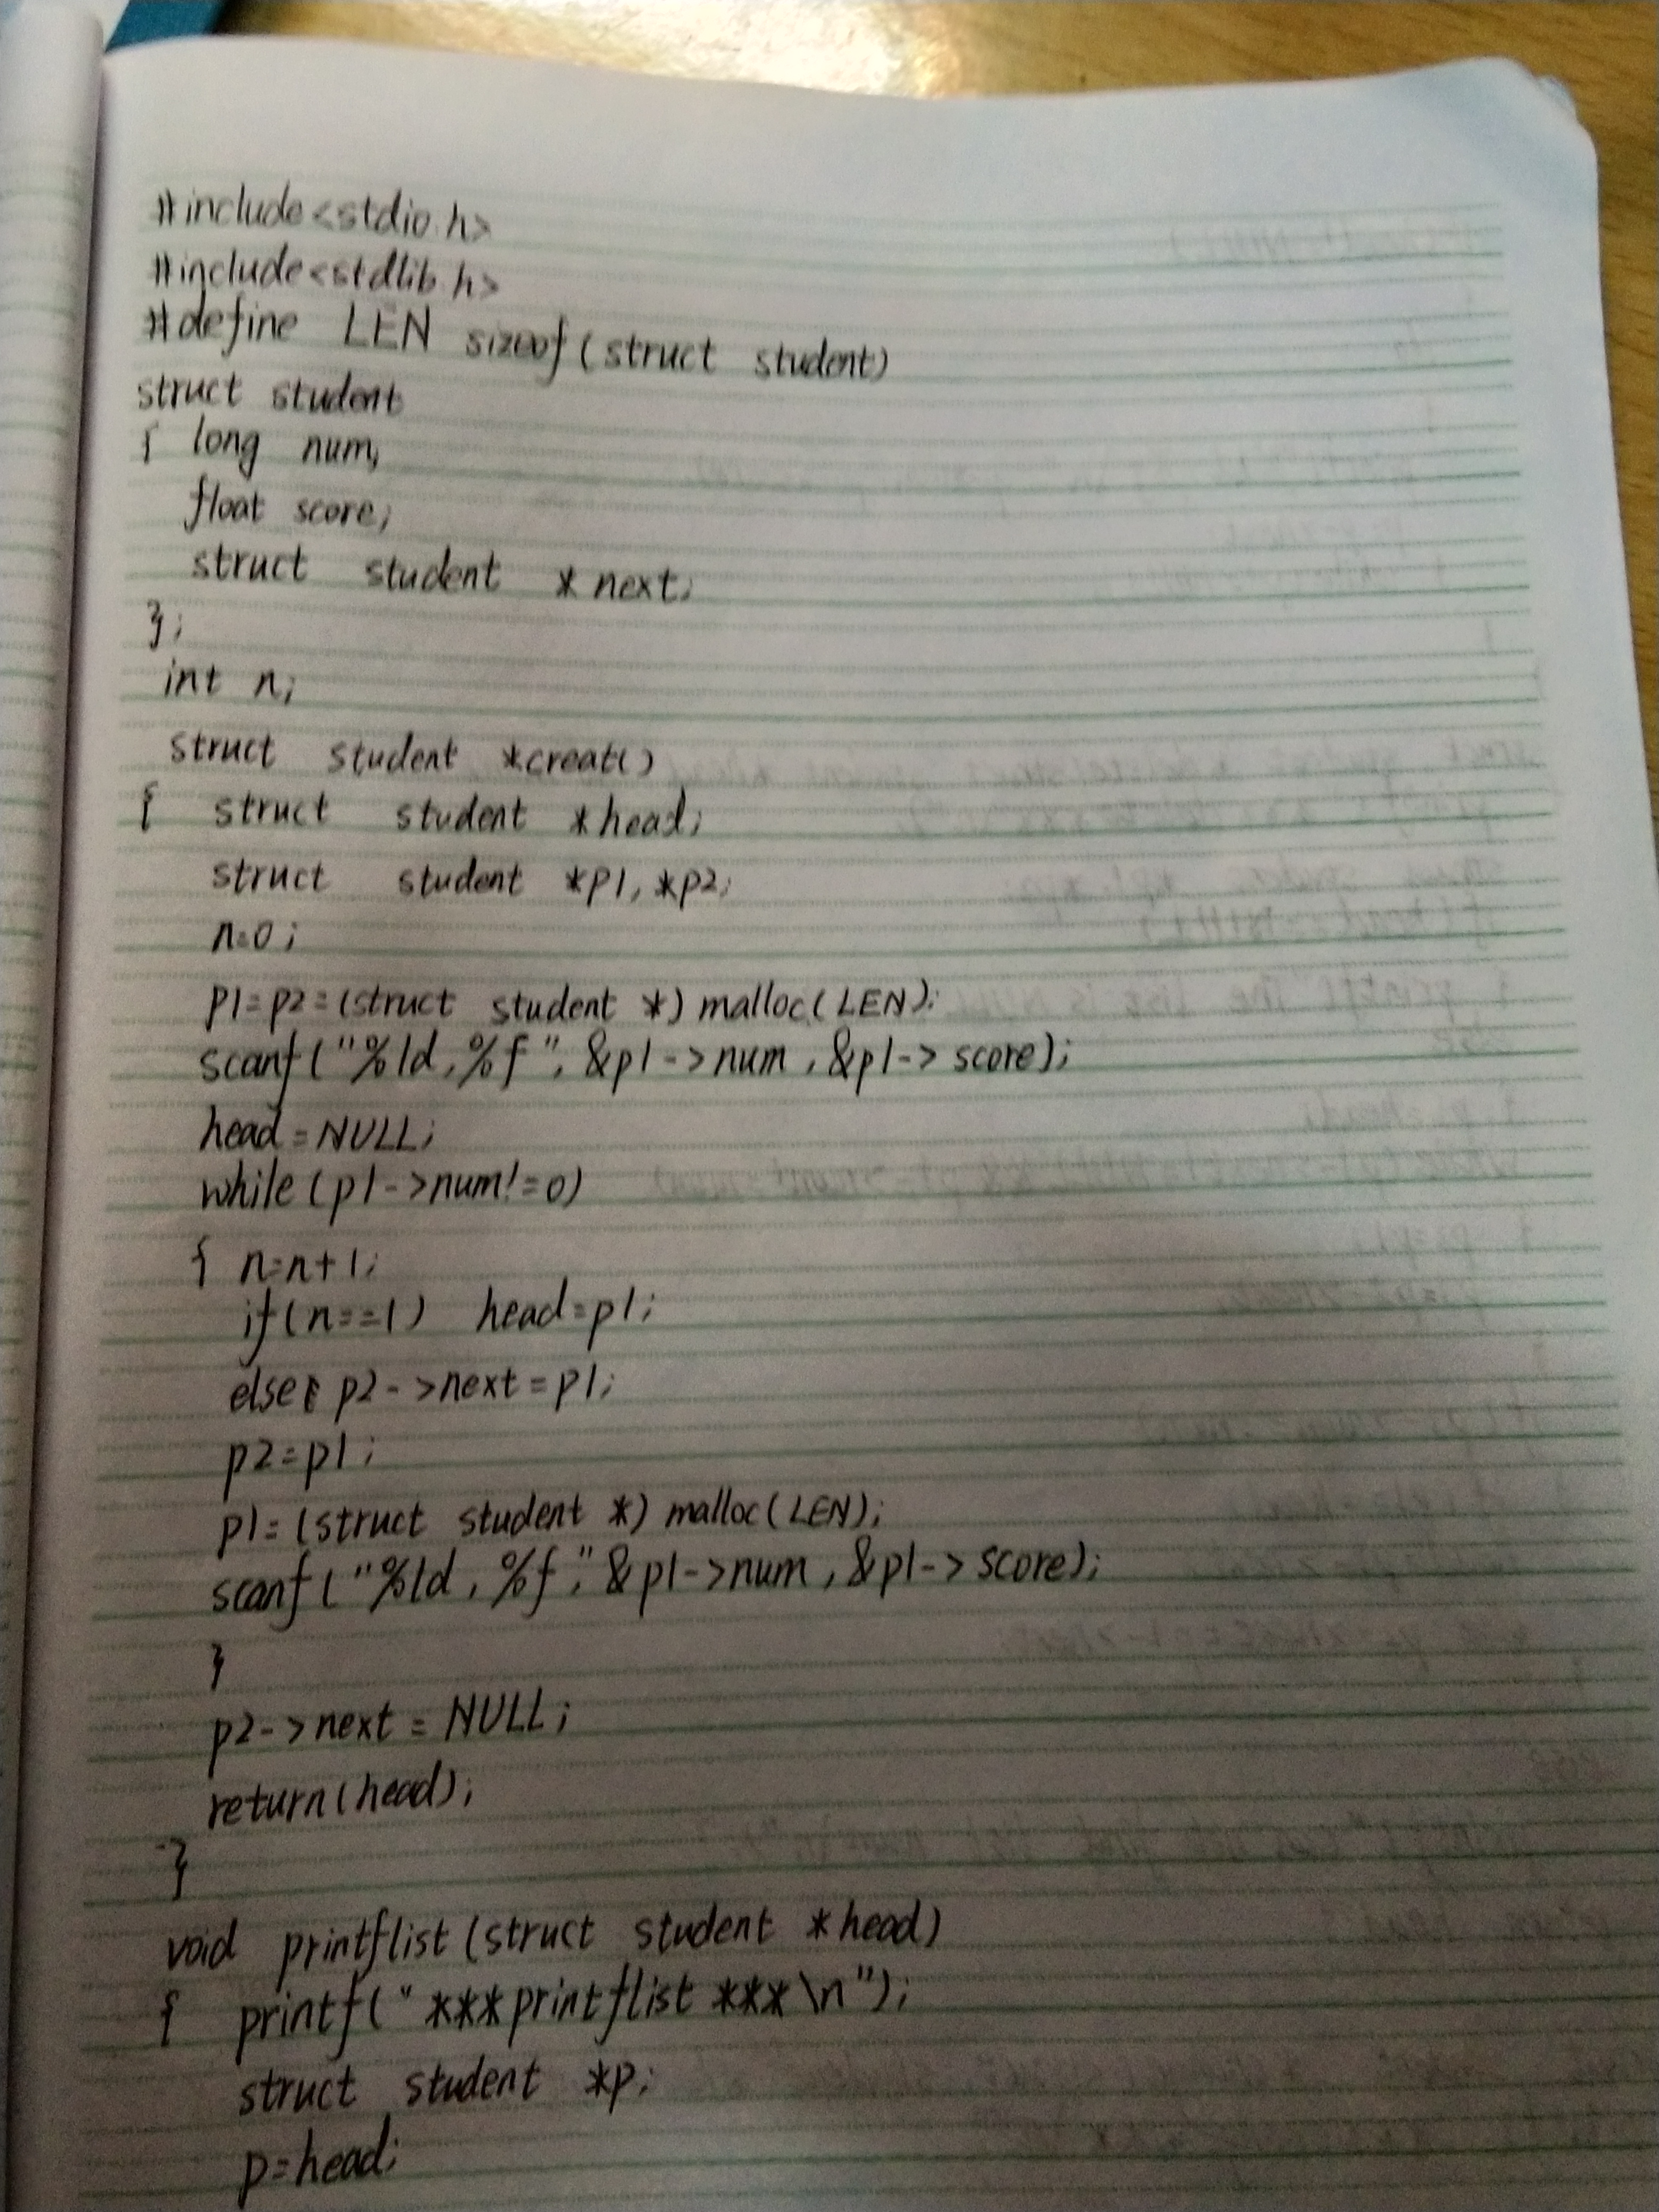 #include<stdio.h>
#include<stdlib.h>
#define LEN sizeof(struct student)
struct student
{ long num;
float score;
struct student *next;
};
int n;
struct student *creat()
{ struct student *head;
struct student *p1,*p2;
n=0;
p1=p2=(struct student *)malloc(LEN);
scanf("%ld,%f",&p1->num,&p1->score);
head=NULL;
while(p1->num!=0)
{ n=n+1;
if(n==1) head=p1;
else p2->next=p1;
p2=p1;
p1=(struct student *)malloc(LEN);
scanf("%ld,%f",&p1->num,&p1->score);
}
p2->next=NULL;
return(head);
}
void printflist(struct student *head)
{ printf("***printflist***\n");
struct student *p;
p=head;